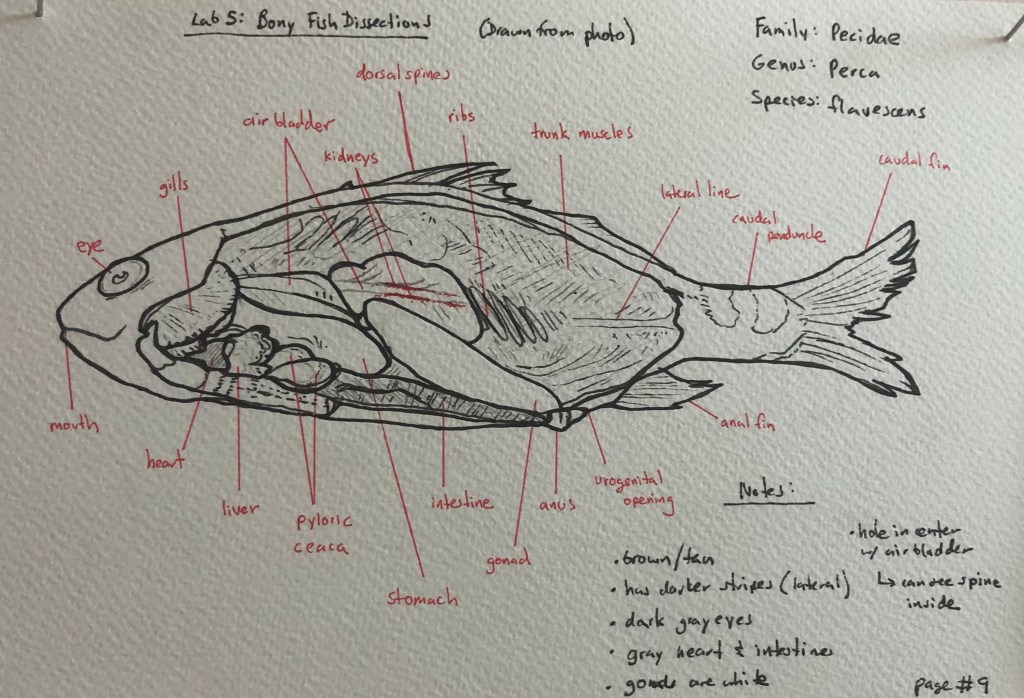 Lab 5: Bony Fish Dissections
(Drawn from photo)
Family: Pecidae
Genus: Perca
Species: flavescens
dorsal spines
air bladder
kidneys
ribs
trunk muscles
caudal fin
gills
lateral line
caudal
penduncle
eye
mouth
heart
liver
pyloric
ceaca
stomach
intestine
gonad
anus
urogenital
opening
anal fin
Notes:
• brown/tan
• has darker stripes (lateral)
• dark gray eyes
• gray heart & intestines
• gonads are white
• hole in center
w/ air bladder
↳ can see spine
inside
page #9